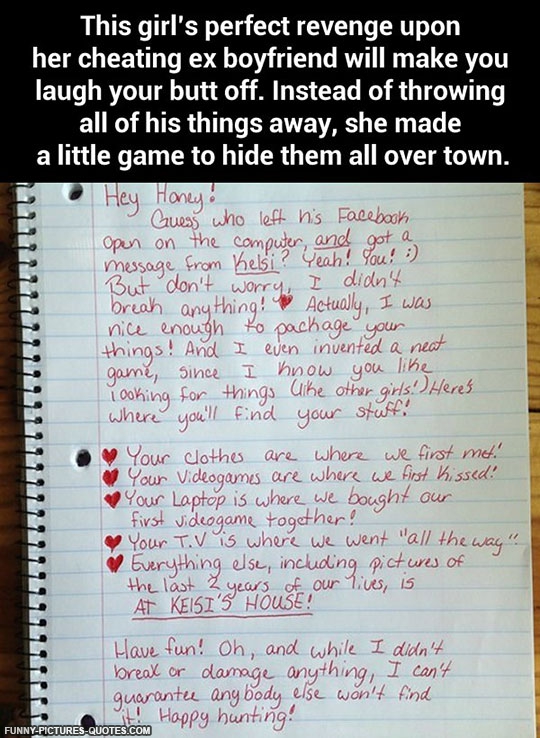 This girl's perfect revenge upon
her cheating ex boyfriend will make you
laugh your butt off. Instead of throwing
all of his things away, she made
a little game to hide them all over town.
Hey Honey!
Guess who left his Facebook
open on the computer, and got a
message from Kelsi? Yeah! You! :)
But don't worry, I didn't
break anything! ♥ Actually, I was
nice enough to package your
things! And I even invented a neat
game, since I know you like
looking for things (like other girls!) Here's
where you'll find your stuff!
♥ Your clothes are where we first met!
♥ Your Videogames are where we first kissed!
♥ Your Laptop is where we bought our
first videogame together!
♥ Your T.V is where we went "all the way"!
♥ Everything else, including pictures of
the last 2 years of our lives, is
AT KElSI'S HOUSE!
Have fun! Oh, and while I didn't
break or damage anything, I can't
guarantee anybody else won't find
it! Happy hunting!
FUNNY-PICTURES-QUOTES.COM